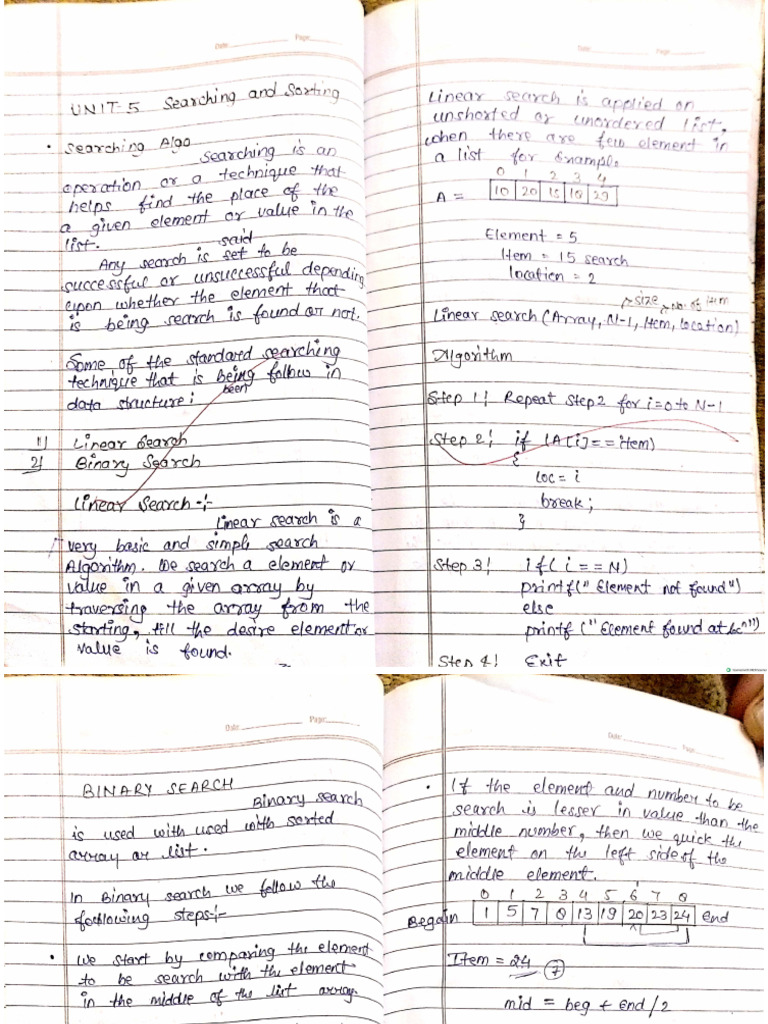 Date: Page:
UNIT-5 Searching and Sorting
• Searching Algo
Searching is an
operation or a technique that
helps find the place of the
a given element or value in the
list.
said
Any search is set to be
successful or unsuccessful depending
upon whether the element that
is being search is found or not.
Some of the standard searching
technique that is being follow in
been
data structure:
1) Linear Search
2) Binary Search
Linear Search :-
Linear search is a
very basic and simple search
Algorithm. We search a element or
value in a given array by
traversing the array from the
starting, till the desire element or
value is found.
Date: Page:
Linear search is applied on
unshorted or unordered list,
when there are few element in
a list for Example
0 1 2 3 4
A = 10 20 15 18 29
Element = 5
Item = 15 search
location = 2
size No. of Item
Linear search (Array, N-1, Item, location)
Algorithm
Step 1! Repeat Step 2 for i=0 to N-1
Step 2! if (A[i]==item)
{
loc = i
break;
}
Step 3! if( i == N)
printf("Element not found")
else
printf ("Element found at loc")
Step 4! Exit
Date: Page:
BINARY SEARCH
Binary search
is used with used with sorted
array or list.
In Binary search we follow the
following steps:-
• We start by comparing the element
to be search with the element
in the middle of the list array.
Date: Page:
• If the element and number to be
search is lesser in value than the
middle number, then we quick the
element on the left side of the
middle element.
0 1 2 3 4 5 6 7 8
Begain 1 5 7 8 13 19 20 23 24 End
Item = 24 7
mid = beg + end/2